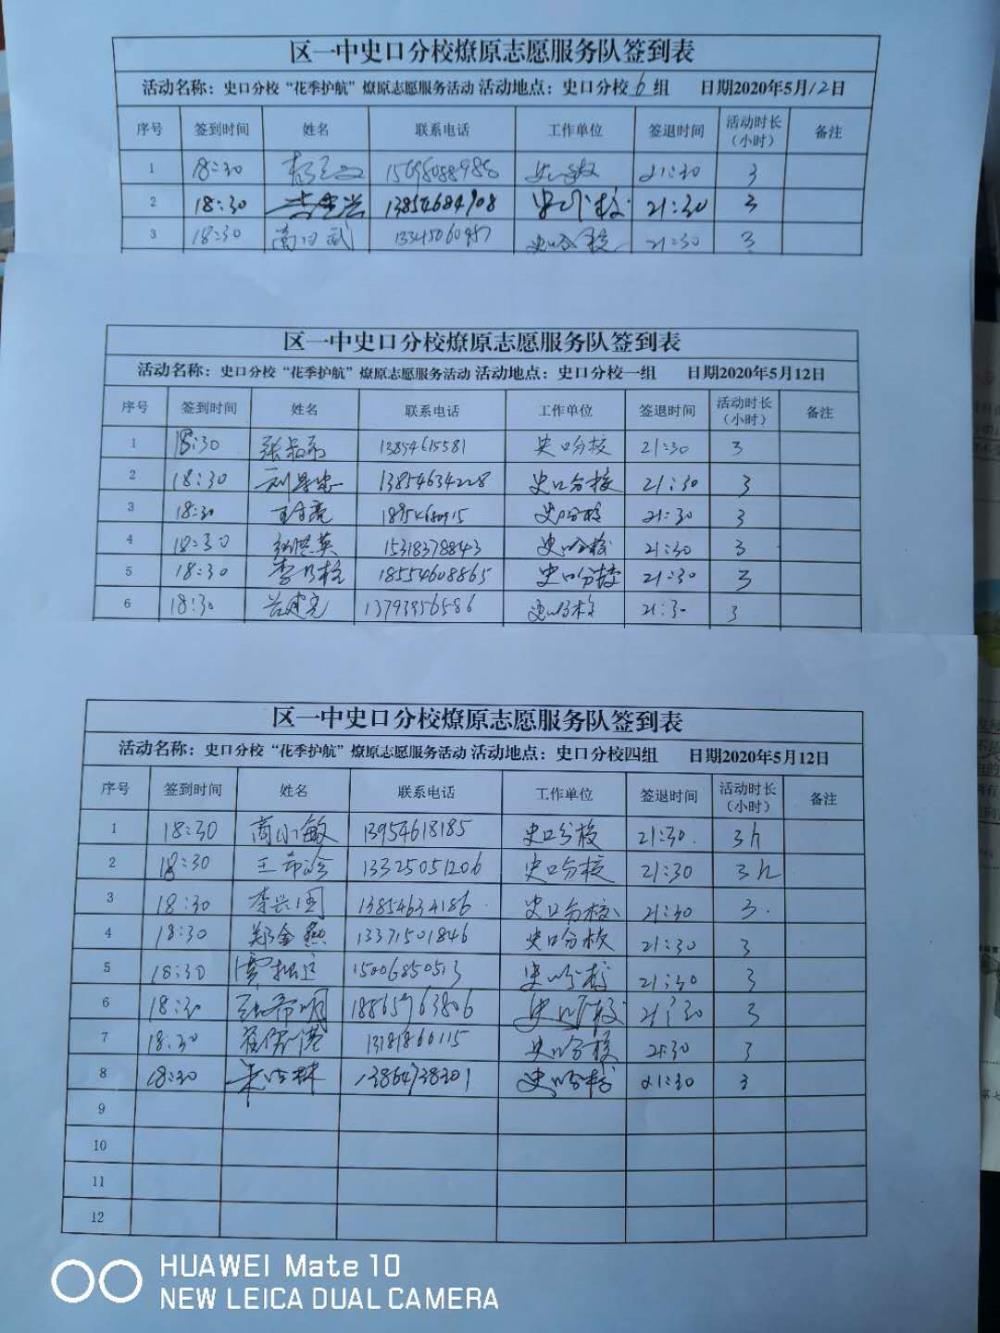 区一中史口分校燎原志愿服务队签到表
活动名称：史口分校“花季护航”燎原志愿服务活动 活动地点：史口分校6组 日期2020年5月12日
序号 签到时间 姓名 联系电话 工作单位 签退时间 活动时长（小时） 备注
1 18:30 21:30 3
2 18:30 13854684908 史口分校 21:30 3
3 18:30 史口分校 21:30 3
区一中史口分校燎原志愿服务队签到表
活动名称：史口分校“花季护航”燎原志愿服务活动 活动地点：史口分校一组 日期2020年5月12日
序号 签到时间 姓名 联系电话 工作单位 签退时间 活动时长（小时） 备注
1 18:30 13854615581 史口分校 21:30 3
2 18:30 13854634228 史口分校 21:30 3
3 18:30 史口分校 21:30 3
4 18:30 15318378843 史口分校 21:30 3
5 18:30 18554608865 史口分校 21:30 3
6 18:30 13793956586 史口分校 21:30 3
区一中史口分校燎原志愿服务队签到表
活动名称：史口分校“花季护航”燎原志愿服务活动 活动地点：史口分校四组 日期2020年5月12日
序号 签到时间 姓名 联系电话 工作单位 签退时间 活动时长（小时） 备注
1 18:30 13954618185 史口分校 21:30 3h
2 18:30 13325051206 史口分校 21:30 3h
3 18:30 李兴国 13854634186 史口分校 21:30 3
4 18:30 郑金燕 13371501846 史口分校 21:30 3
5 18:30 15006850513 史口分校 21:30 3
6 18:30 张希明 18865963806 史口分校 21:30 3
7 18:30 13181866115 史口分校 21:30 3
8 18:30 13864738301 史口分校 21:30 3
9
10
11
12
HUAWEI Mate 10
NEW LEICA DUAL CAMERA